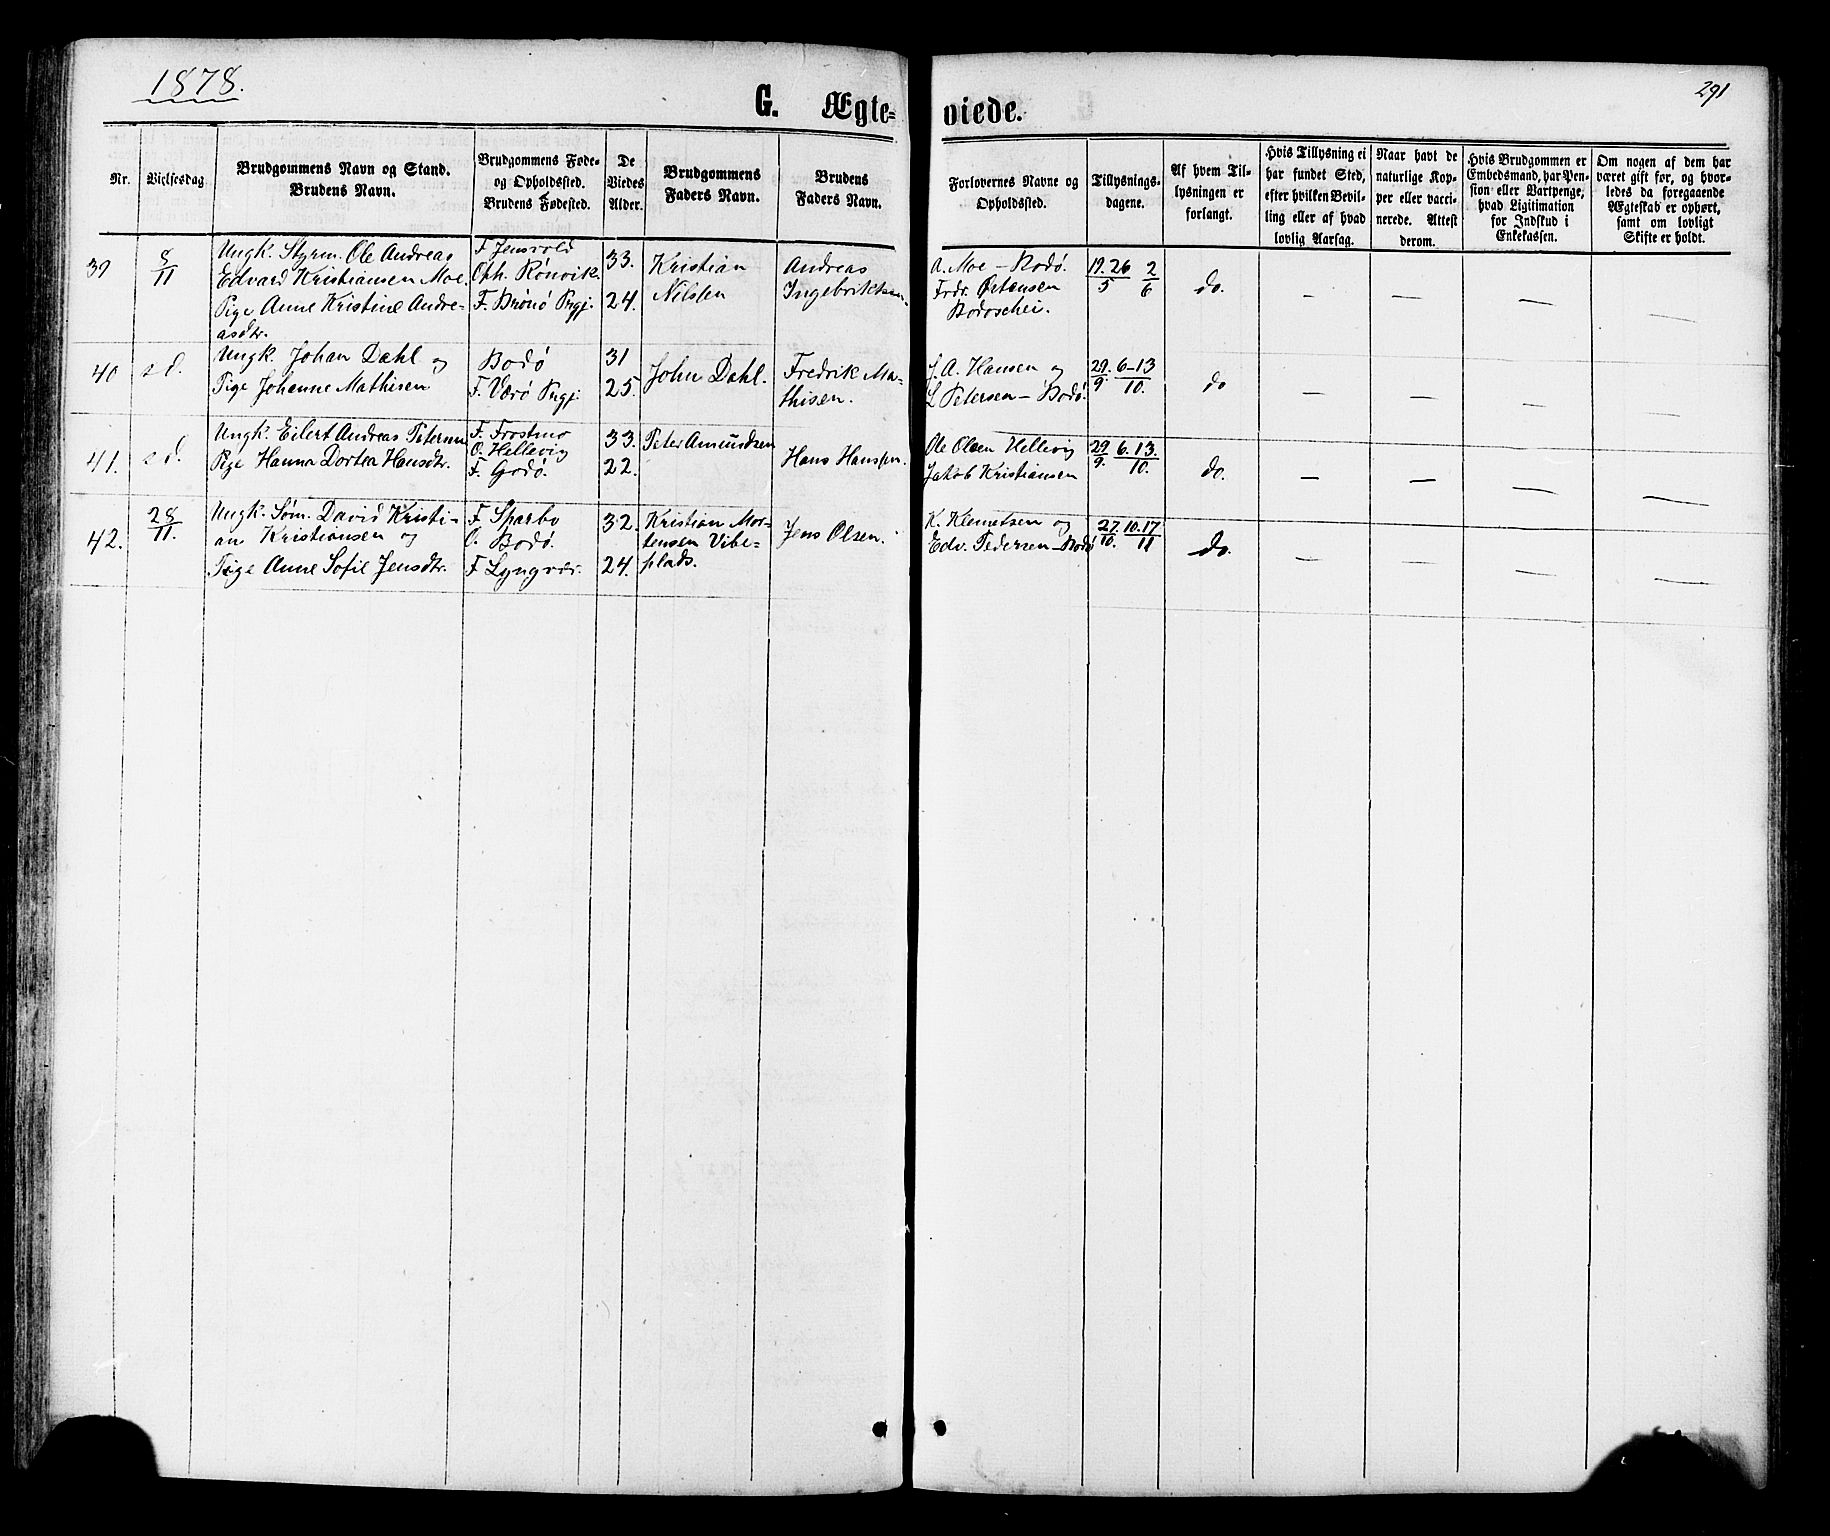 1878.
291
G. Ægte-
viede.
Nr.
Vielsesdag
Brudgommens Navn og Stand.
Brudens Navn.
Brudgommens Føde-
og Opholdssted.
Brudens Fødested.
De
Viedes
Alder.
Brudgommens
Faders Navn.
Brudens
Faders Navn.
Forlovernes Navne og
Opholdssted.
Tillysnings-
dagene.
Af hvem Til-
lysningen er
forlangt.
Hvis Tillysning ei
har fundet Sted,
efter hvilken Bevil-
ling eller af hvad
lovlig Aarsag.
Naar havt de
naturlige Kop-
per eller vacci-
nerede. Attest
derom.
Hvis Brudgommen er
Embedsmand, har Pen-
sion eller Vartpenge,
hvad Ligitimation
for Indskud i
Enkekassen.
Om nogen af dem har
været gift før, og hvor-
ledes da foregaaende
Ægteskab er ophørt,
samt om lovligt
Skifte er holdt.
39
8/11
Ungk. Styrm. Ole Andreas
Edvard Kristiansen Moe.
Pige Anne Kristine Andre-
asdtr.
F Jensvold
Oph. Rønvik.
F. Brønø Prgj.
33.
24.
Kristian
Nilsen
Andreas
Ingebriktsen.
A. Moe - Bodø.
Frdr. Ørtensen
Bodøschei.
19. 26/5 2/6
do.
—
—
—
—
40
s d.
Ungk. Johan Dahl og
Pige Johanne Mathisen
Bodø
F. Værø Prgj.
31
25.
John Dahl.
Fredrik Ma-
thisen.
J. A. Hansen og
L Petersen - Bodø.
29./9. 6-13/10.
do
—
—
—
—
41.
s d.
Ungk. Eilert Andreas Petersen
Pige Hanna Dortea Hansdtr.
F. Frostmo
O. Hellevig
F. Godø.
33.
22.
Peter Amundsen
Hans Hansen.
Ole Olsen Hellevig
Jakob Kristiansen
29/9. 6. 13./10.
do.
—
—
—
—
42.
28/11.
Ungk. Søm. David Kristi-
an Kristiansen og
Pige Anne Sofie Jensdtr.
F. Sparbo
O. Bodø.
F Lyngvær.
32.
24.
Kristian Mor-
tensen Vibe-
plads.
Jens Olsen.
K. Klemetsen og
Edv. Pedersen - Bodø
27./10. 10. 17/11
do.
—
—
—
—